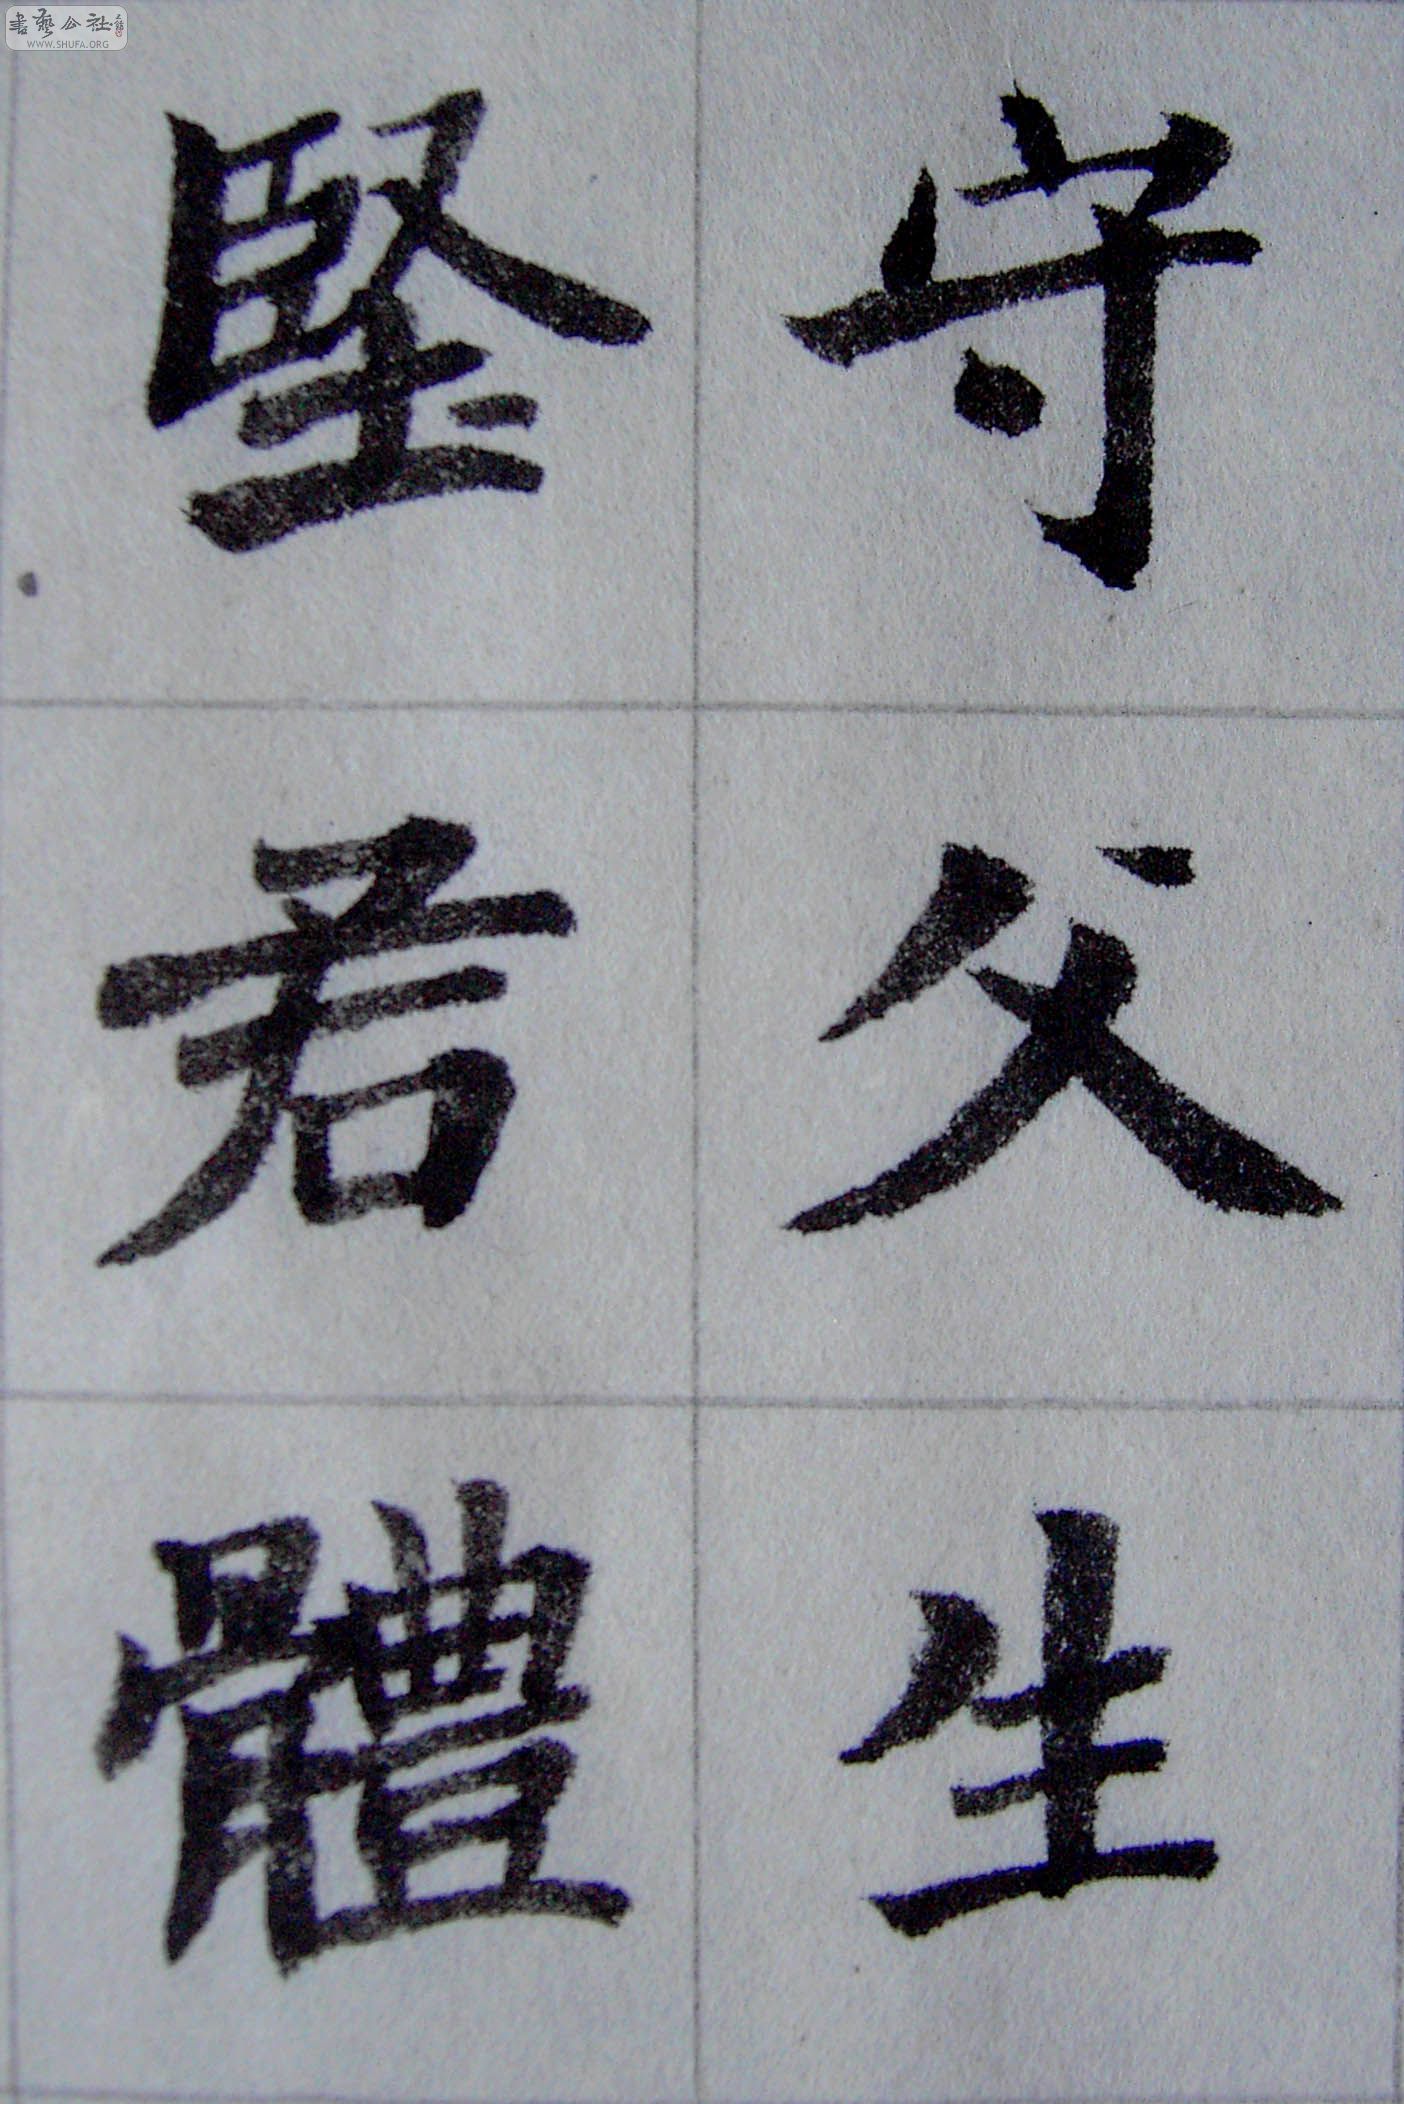 守父生
堅君體
書藝公社
WWW.SHUFA.ORG